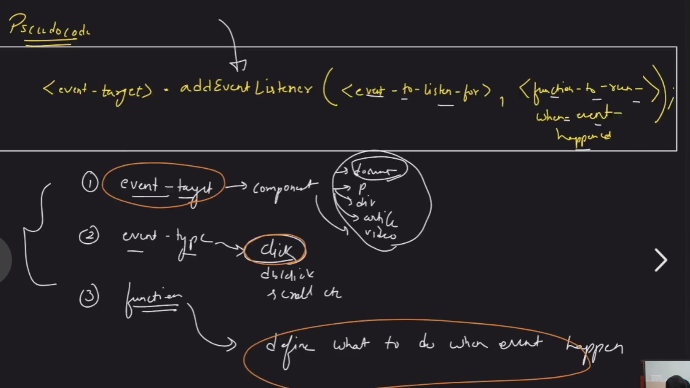 Pseudocode
<event-target> . addEventListener ( <event-to-listen-for> , <function-to-run-
when-event-
happened> ) ;
① event-target → component
→ p
→ div
→ article
video
② event-type → click
dblclick
scroll etc
③ function
define what to do when event happen